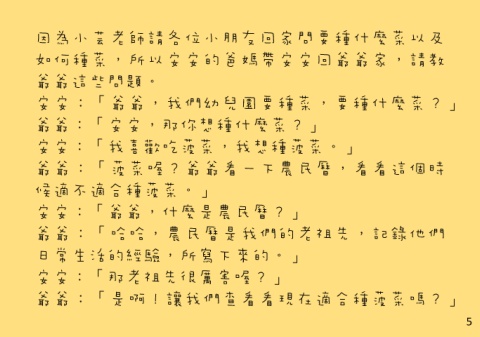 因為小芸老師請各位小朋友回家問要種什麼菜以及
如何種菜，所以安安的爸媽帶安安回爺爺家，請教
爺爺這些問題。
安安：「爺爺，我們幼兒園要種菜，要種什麼菜？」
爺爺：「安安，那你想種什麼菜？」
安安：「我喜歡吃菠菜，我想種菠菜。」
爺爺：「菠菜喔？爺爺看一下農民曆，看看這個時
候適不適合種菠菜。」
安安：「爺爺，什麼是農民曆？」
爺爺：「哈哈，農民曆是我們的老祖先，記錄他們
日常生活的經驗，所寫下來的。」
安安：「那老祖先很厲害喔？」
爺爺：「是啊！讓我們查看看現在適合種菠菜嗎？」
5